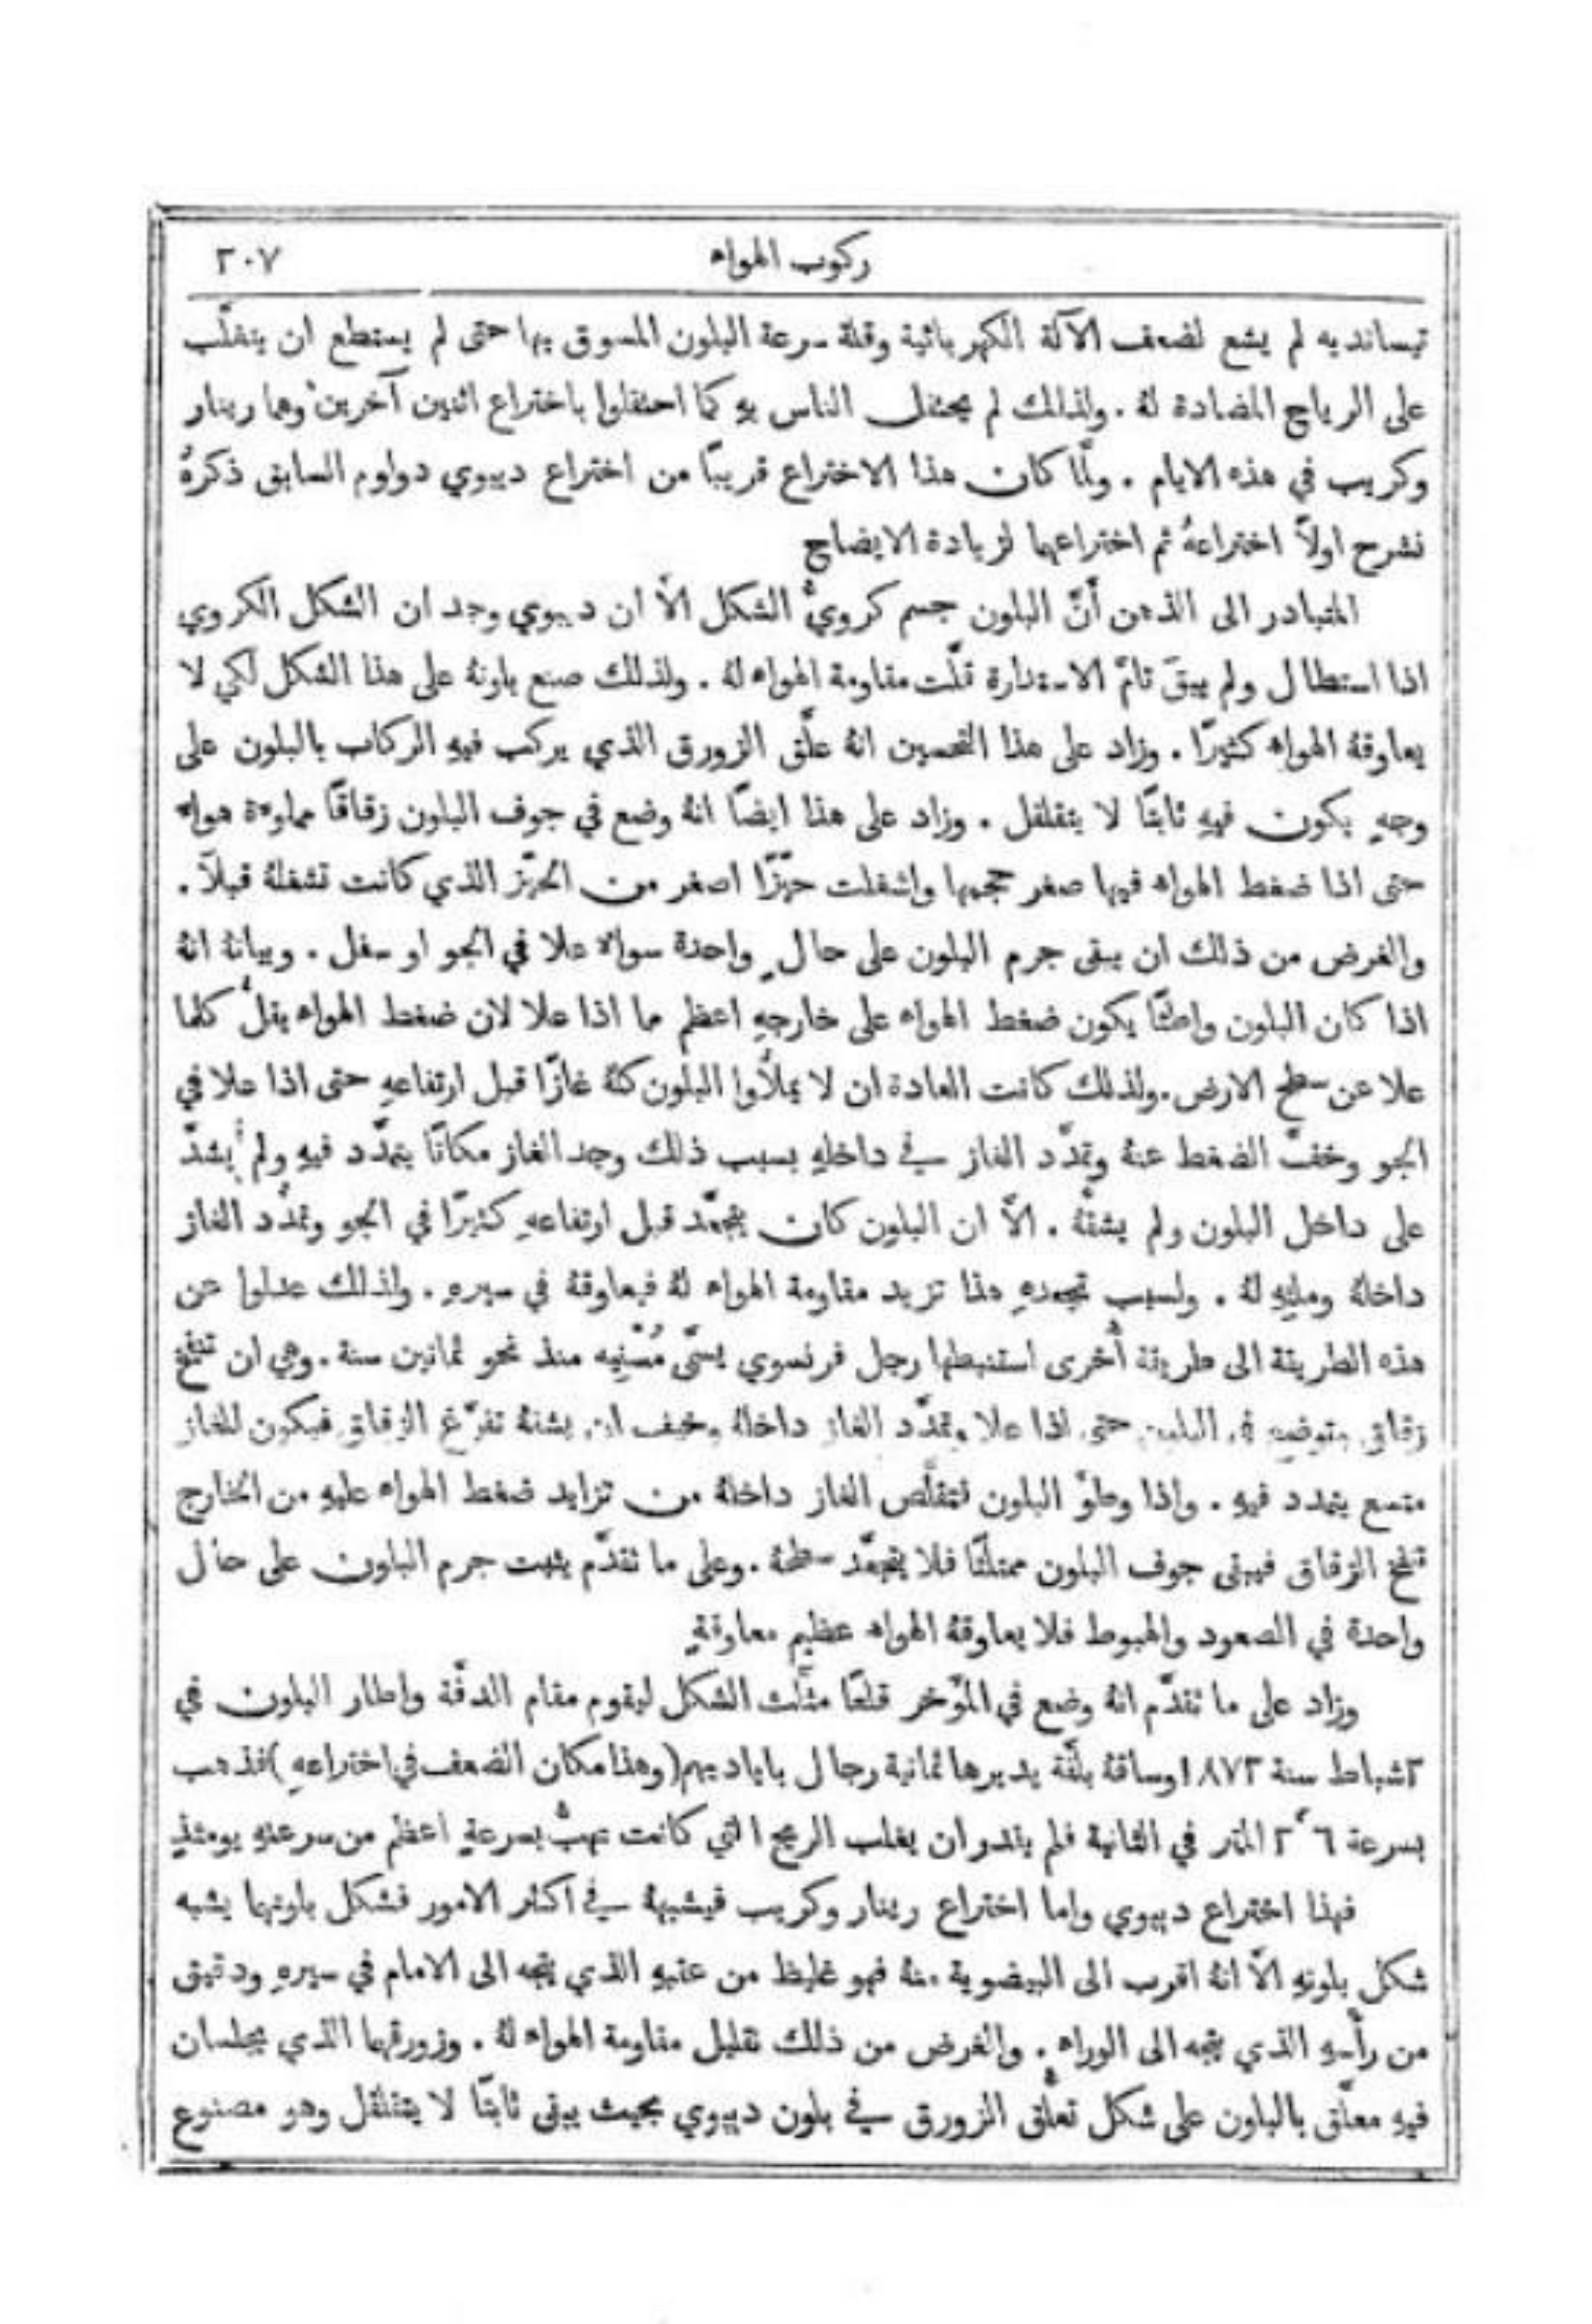 ركوب الهواء ٢٠٧
تيسانديه لم يشع لضعف الآلة الكهربائية وقلة سرعة البلون المسوق بها حتى لم يستطع ان يتغلّب
على الرياح المضادة لهُ . ولذلك لم يحتفل الناس بهِ كما احتفلوا باختراع اثنين آخرين وهما رينار
وكريب في هذه الايام . ولمّا كان هذا الاختراع قريبًا من اختراع ديبوي دولوم السابق ذكرهُ
نشرح اولاً اختراعهُ ثم اختراعهما لزيادة الايضاح
المتبادر الى الذهن أنّ البلون جسم كرويُّ الشكل الاّ ان ديبوي وجد ان الشكل الكروي
اذا استطال ولم يبقَ تامّ الاستدارة قلّت مقاومة الهواء لهُ . ولذلك صنع بلونهُ على هذا الشكل لكي لا
يعاوقهُ الهواء كثيرًا . وزاد على هذا التحسين انهُ علّق الزورق الذي يركب فيهِ الركاب بالبلون على
وجهٍ يكون فيهِ ثابتًا لا يتقلقل . وزاد على هذا ايضًا انهُ وضع في جوف البلون زقاقًا مملوءة هواء
حتى اذا ضغط الهواء فيها صغر حجمها واشغلت حيّزًا اصغر من الحيّز الذي كانت تشغلهُ قبلاً .
والغرض من ذلك ان يبقى جرم البلون على حالٍ واحدة سواء علا في الجو او سفل . وبيانهُ انهُ
اذا كان البلون واطئًا يكون ضغط الهواء على خارجهِ اعظم مما اذا علا لان ضغط الهواء يقلُّ كلما
علا عن سطح الارض . ولذلك كانت العادة ان لا يملأُوا البلون كلهُ غازًا قبل ارتفاعهِ حتى اذا علا في
الجو وخفّ الضغط عنهُ وتمدّد الغاز في داخلهِ بسبب ذلك وجد الغاز مكانًا يتمدّد فيهِ ولم يشدّ
على داخل البلون ولم يشقّهُ . الاّ ان البلون كان يتجعّد قبل ارتفاعهِ كثيرًا في الجو وتمدُّد الغاز
داخلهُ وملئِهِ لهُ . ولسبب تجعدهِ هذا تزيد مقاومة الهواء لهُ فيعاوقهُ في سيرهِ . ولذلك عدلوا عن
هذه الطريقة الى طريقة أُخرى استنبطها رجل فرنسوي يسمّى مُسْنِيه منذ نحو ثمانين سنة . وهي ان تنفخ
زقاق وتوضع في البلون حتى اذا علا وتمدّد الغاز داخلهُ وخيف ان يشقهُ تفرّغ الزقاق فيكون للغاز
متسع يتمدد فيهِ . واذا وطؤ البلون فتقلّص الغاز داخلهُ من تزايد ضغط الهواء عليهِ من الخارج
تنفخ الزقاق فيبقى جوف البلون ممتلئًا فلا يتجعّد سطحهُ . وعلى ما تقدّم يثبت جرم البلون على حال
واحدة في الصعود والهبوط فلا يعاوقهُ الهواء عظيم معاوقةٍ
وزاد على ما تقدّم انهُ وضع في المؤخر قلعًا مثلّث الشكل ليقوم مقام الدفّة واطار البلون في
٢ شباط سنة ١٨٧٢ وساقهُ بلفّة يديرها ثمانية رجال باياديهم (وهذا مكان الضعف في اختراعهِ) فذهب
بسرعة ٢٬٦ المتر في الثانية فلم يقدر ان يغلب الريح التي كانت تهبُّ بسرعةٍ اعظم من سرعتهِ يومئذٍ
فهذا اختراع ديبوي واما اختراع رينار وكريب فيشبههُ في اكثر الامور فشكل بلونهما يشبه
شكل بلونهِ الاّ انهُ اقرب الى البيضوية منهُ فهو غليظ من عقبهِ الذي يتجه الى الامام في سيرهِ ودقيق
من رأْسهِ الذي يتجه الى الوراء . والغرض من ذلك تقليل مقاومة الهواء لهُ . وزورقهما الذي يجلسان
فيهِ معلّق بالبلون على شكل تعلّق الزورق في بلون ديبوي بحيث يبقى ثابتًا لا يتقلقل وهو مصنوع